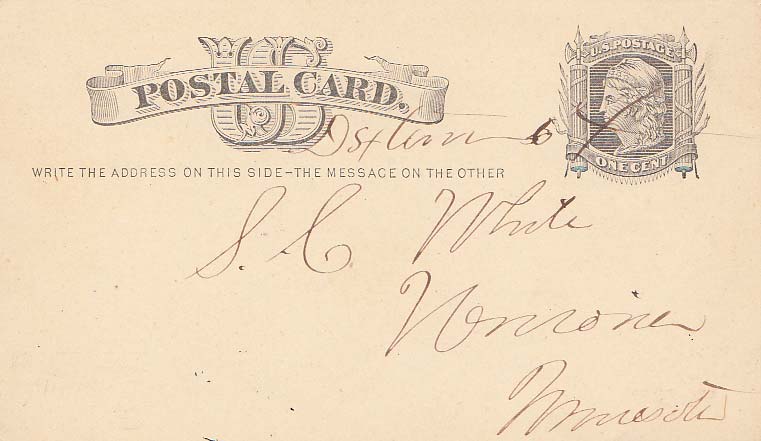 US
POSTAL CARD.
U.S. POSTAGE
ONE CENT
WRITE THE ADDRESS ON THIS SIDE–THE MESSAGE ON THE OTHER
S. C. White
Minnesota